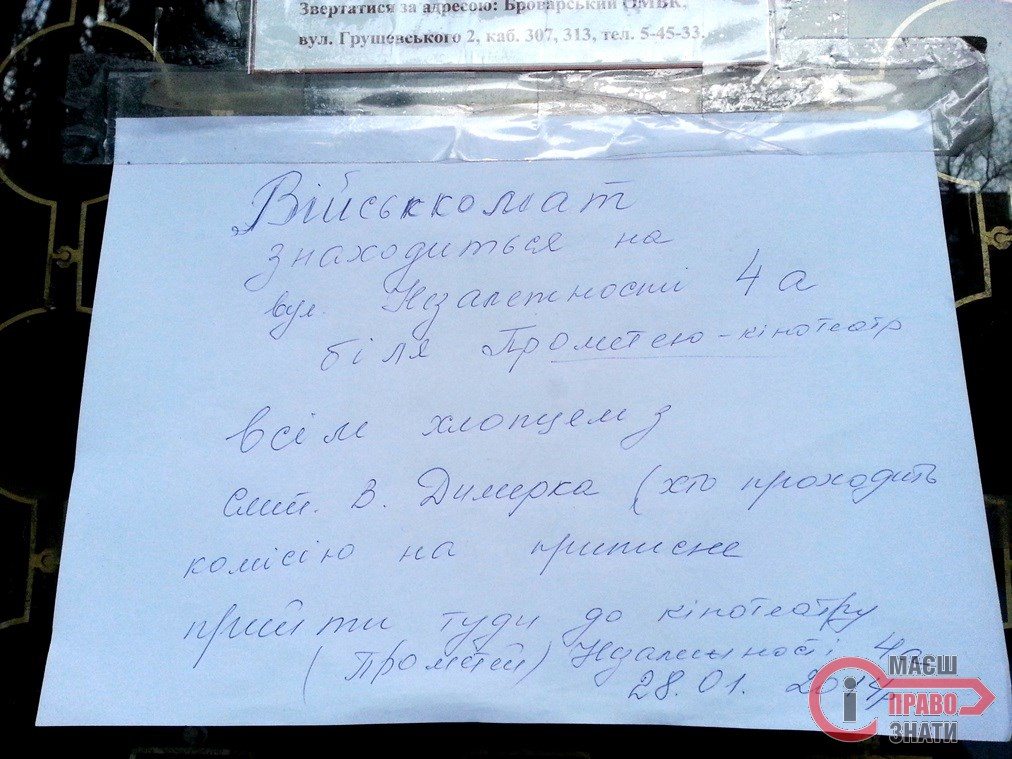 Звертатися за адресою: Броварський ОМВК,
вул. Грушевського 2, каб. 307, 313, тел. 5-45-33.
Військкомат
знаходиться на
вул. Незалежності 4а
біля Прометею-кінотеатр
всім хлопцем з
смт. В. Димерка (хто проходить
комісію на приписне
прийти туди до кінотеатру
(Прометей) Незалжності 4а
28.01. 2014р
МАЄШ
ПРАВО
ЗНАТИ